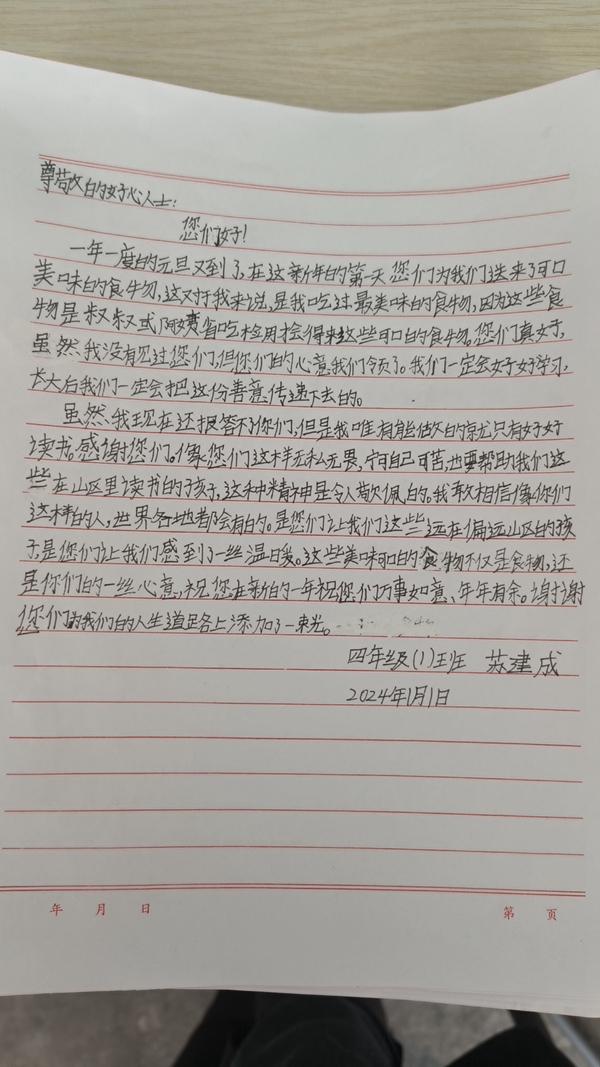 尊敬的好心人士:
您们好!
一年一度的元旦又到了,在这新年的第一天您们为我们送来了可口
美味的食物,这对于我来说,是我吃过最美味的食物,因为这些食
物是叔叔或阿姨省吃检用才会得来这些可口的食物。您们真好,
虽然我没有见过您们,但您们的心意我们领了。我们一定会好好学习,
长大后我们一定会把这份善意传递下去的。
虽然我现在还报答不了你们,但是我唯有能做的就尤只有好好
读书。感谢您们。像您们这样无私无畏,宁自己可苦,也要帮助我们这
些在山区里读书的孩子,这种精神是令人敬佩的。我敢相信像你们
这样的人,世界各地都会有的。是您们让我们这些远在偏远山区的孩
子是您们让我们感到了一丝温暖。这些美味可口的食物不仅是食物,还
是你们的一丝心意,祝您在新的一年祝您们万事如意、年年有余。谢谢
您们为我们的人生道路上添加了一束光。
四年级(1)班 苏建成
2024年1月1日
年 月 日 第 页